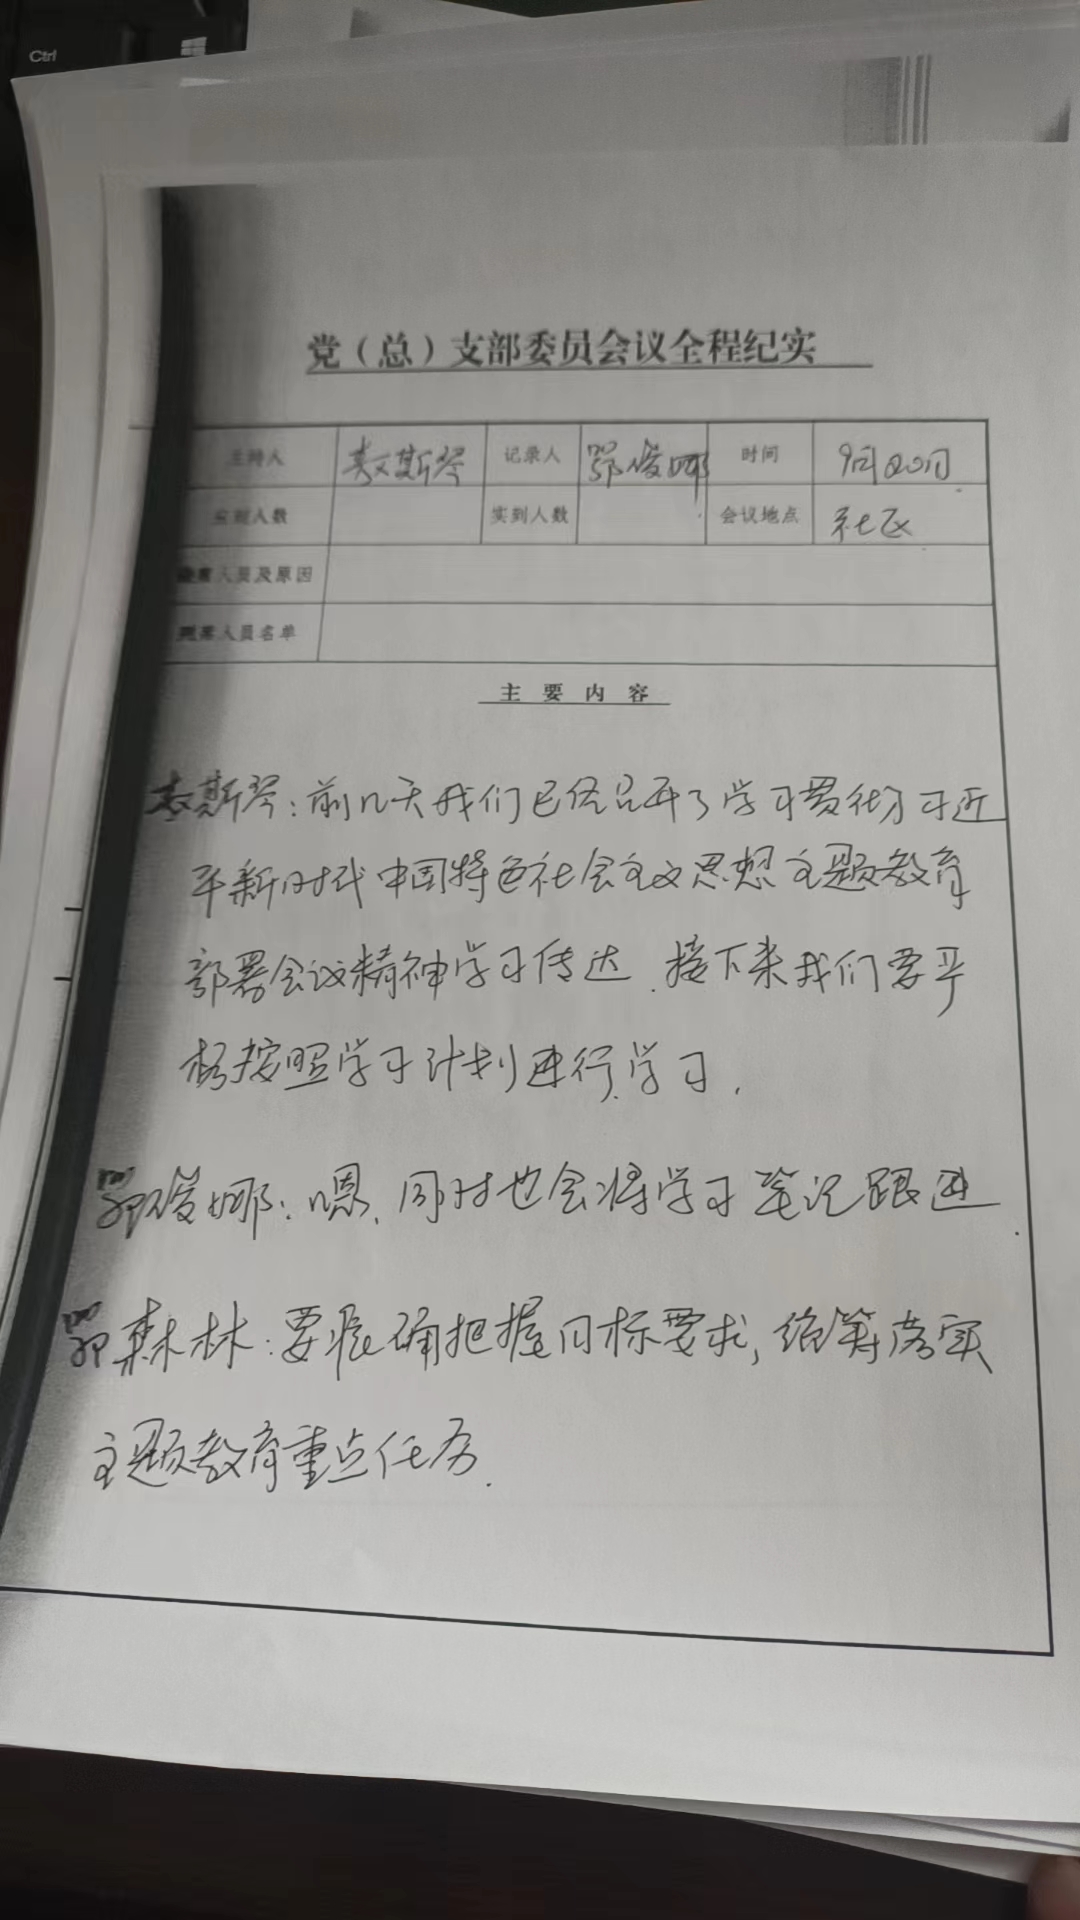 Ctrl
党（总）支部委员会议全程纪实
主持人 敖斯琴 记录人 鄂俊娜 时间 9月20日
应到人数 实到人数 会议地点 社区
缺席人员及原因
列席人员名单
主要内容
敖斯琴：前几天我们已经召开了学习贯彻习近
平新时代中国特色社会主义思想主题教育
部署会议精神学习传达.接下来我们要严
格按照学习计划进行学习.
鄂俊娜：嗯、同时也会将学习笔记跟进.
鄂森林：要准确把握目标要求，统筹落实
主题教育重点任务.